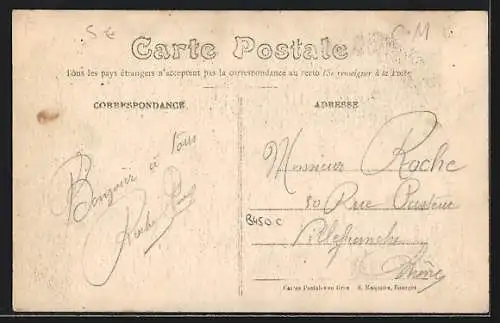 Carte Postale
Tous les pays étrangers n'acceptent pas la correspondance au recto (Se renseigner à la Poste)
CORRESPONDANCE
ADRESSE
Bonjour à tous
Roche
Monsieur Roche
80 Rue Pasteur
B450 C
Villefranche
Rhône
Cartes Postales en Gros E. Maquaire, Bourges